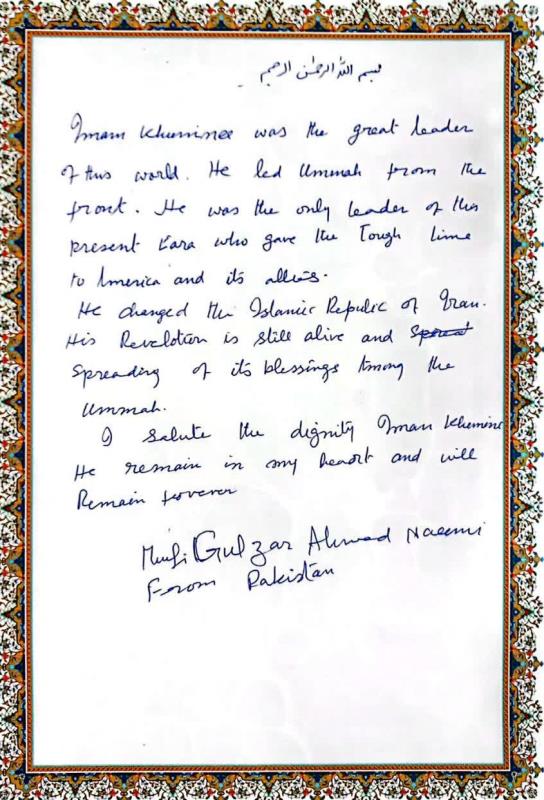 بسم الله الرحمن الرحیم
Imam Khuminee was the great leader
of this world. He led Ummah from the
front. He was the only leader of this
present Eara who gave the Tough time
to America and its allies.
He changed the Islamic Repulic of Iran.
His Revelotion is still alive and
Spreading of its blessings Among the
Ummah.
I salute the dignity Iman Khumine
He remain in my heart and will
Remain forever
Mufti Gulzar Ahmad Naeemi
From Pakistan